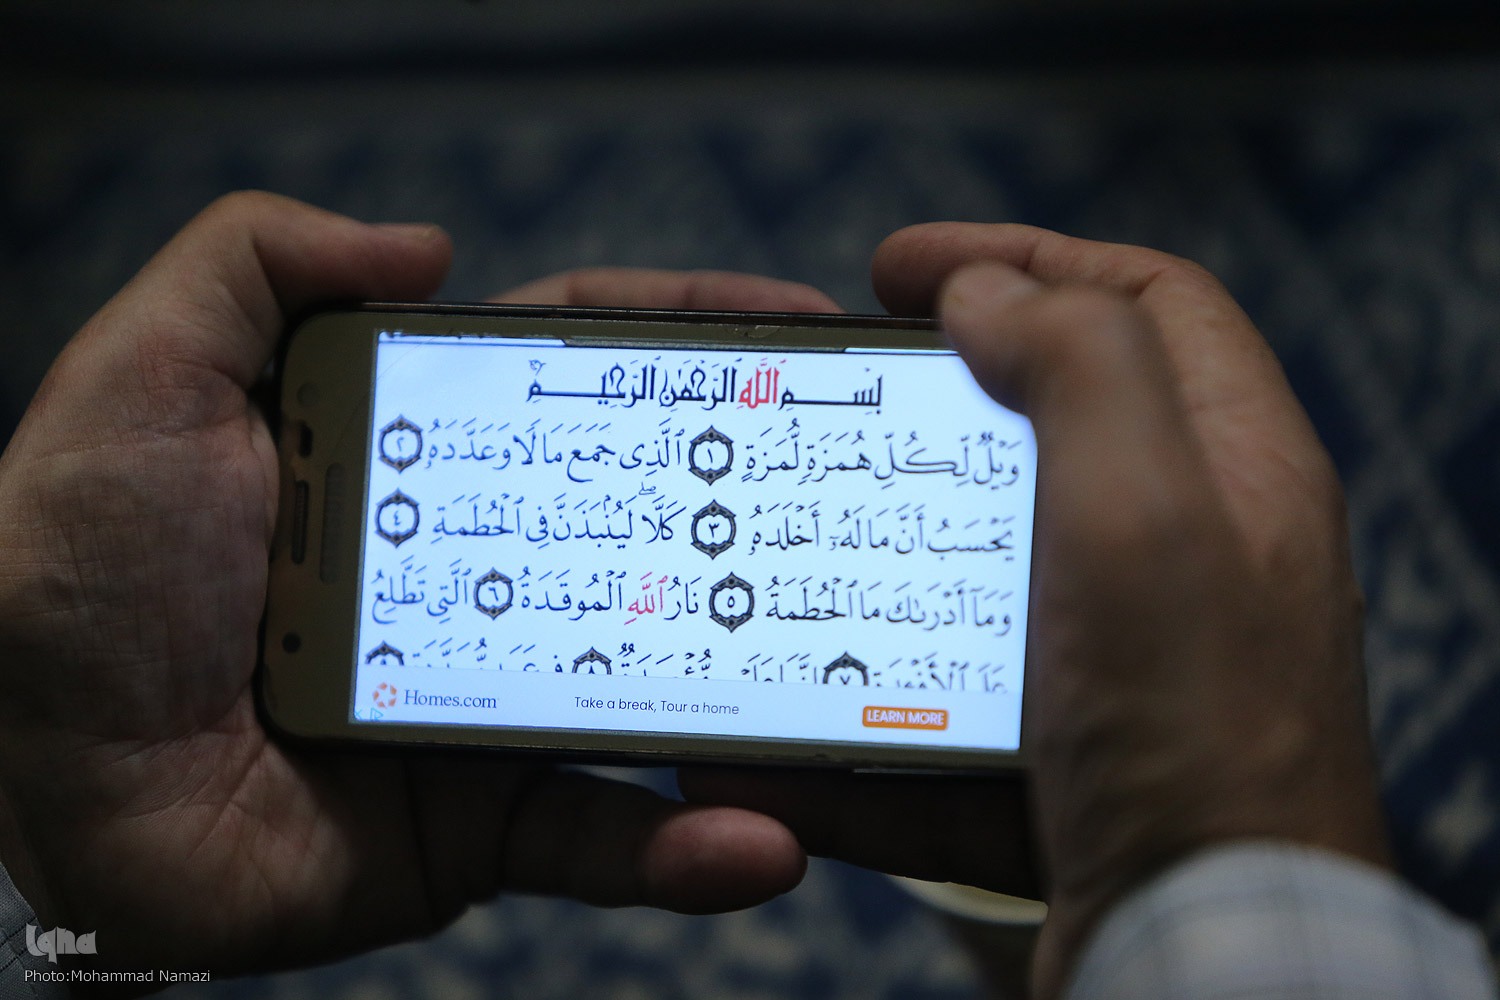 بِسْمِ ٱللَّهِ ٱلرَّحْمَٰنِ ٱلرَّحِيمِ
وَيْلٌ لِّكُلِّ هُمَزَةٍ لُّمَزَةٍ ١ ٱلَّذِى جَمَعَ مَالًا وَعَدَّدَهُۥ ٢
يَحْسَبُ أَنَّ مَالَهُۥٓ أَخْلَدَهُۥ ٣ كَلَّا ۖ لَيُنۢبَذَنَّ فِى ٱلْحُطَمَةِ ٤
وَمَآ أَدْرَىٰكَ مَا ٱلْحُطَمَةُ ٥ نَارُ ٱللَّهِ ٱلْمُوقَدَةُ ٦ ٱلَّتِى تَطَّلِعُ
عَلَى ٱلْأَفْـِٔدَةِ ٧ إِنَّهَا عَلَيْهِم مُّؤْصَدَةٌ ٨ فِى عَمَدٍ مُّمَدَّدَةٍ ٩
Homes.com Take a break, Tour a home LEARN MORE
Iqna
Photo:Mohammad Namazi